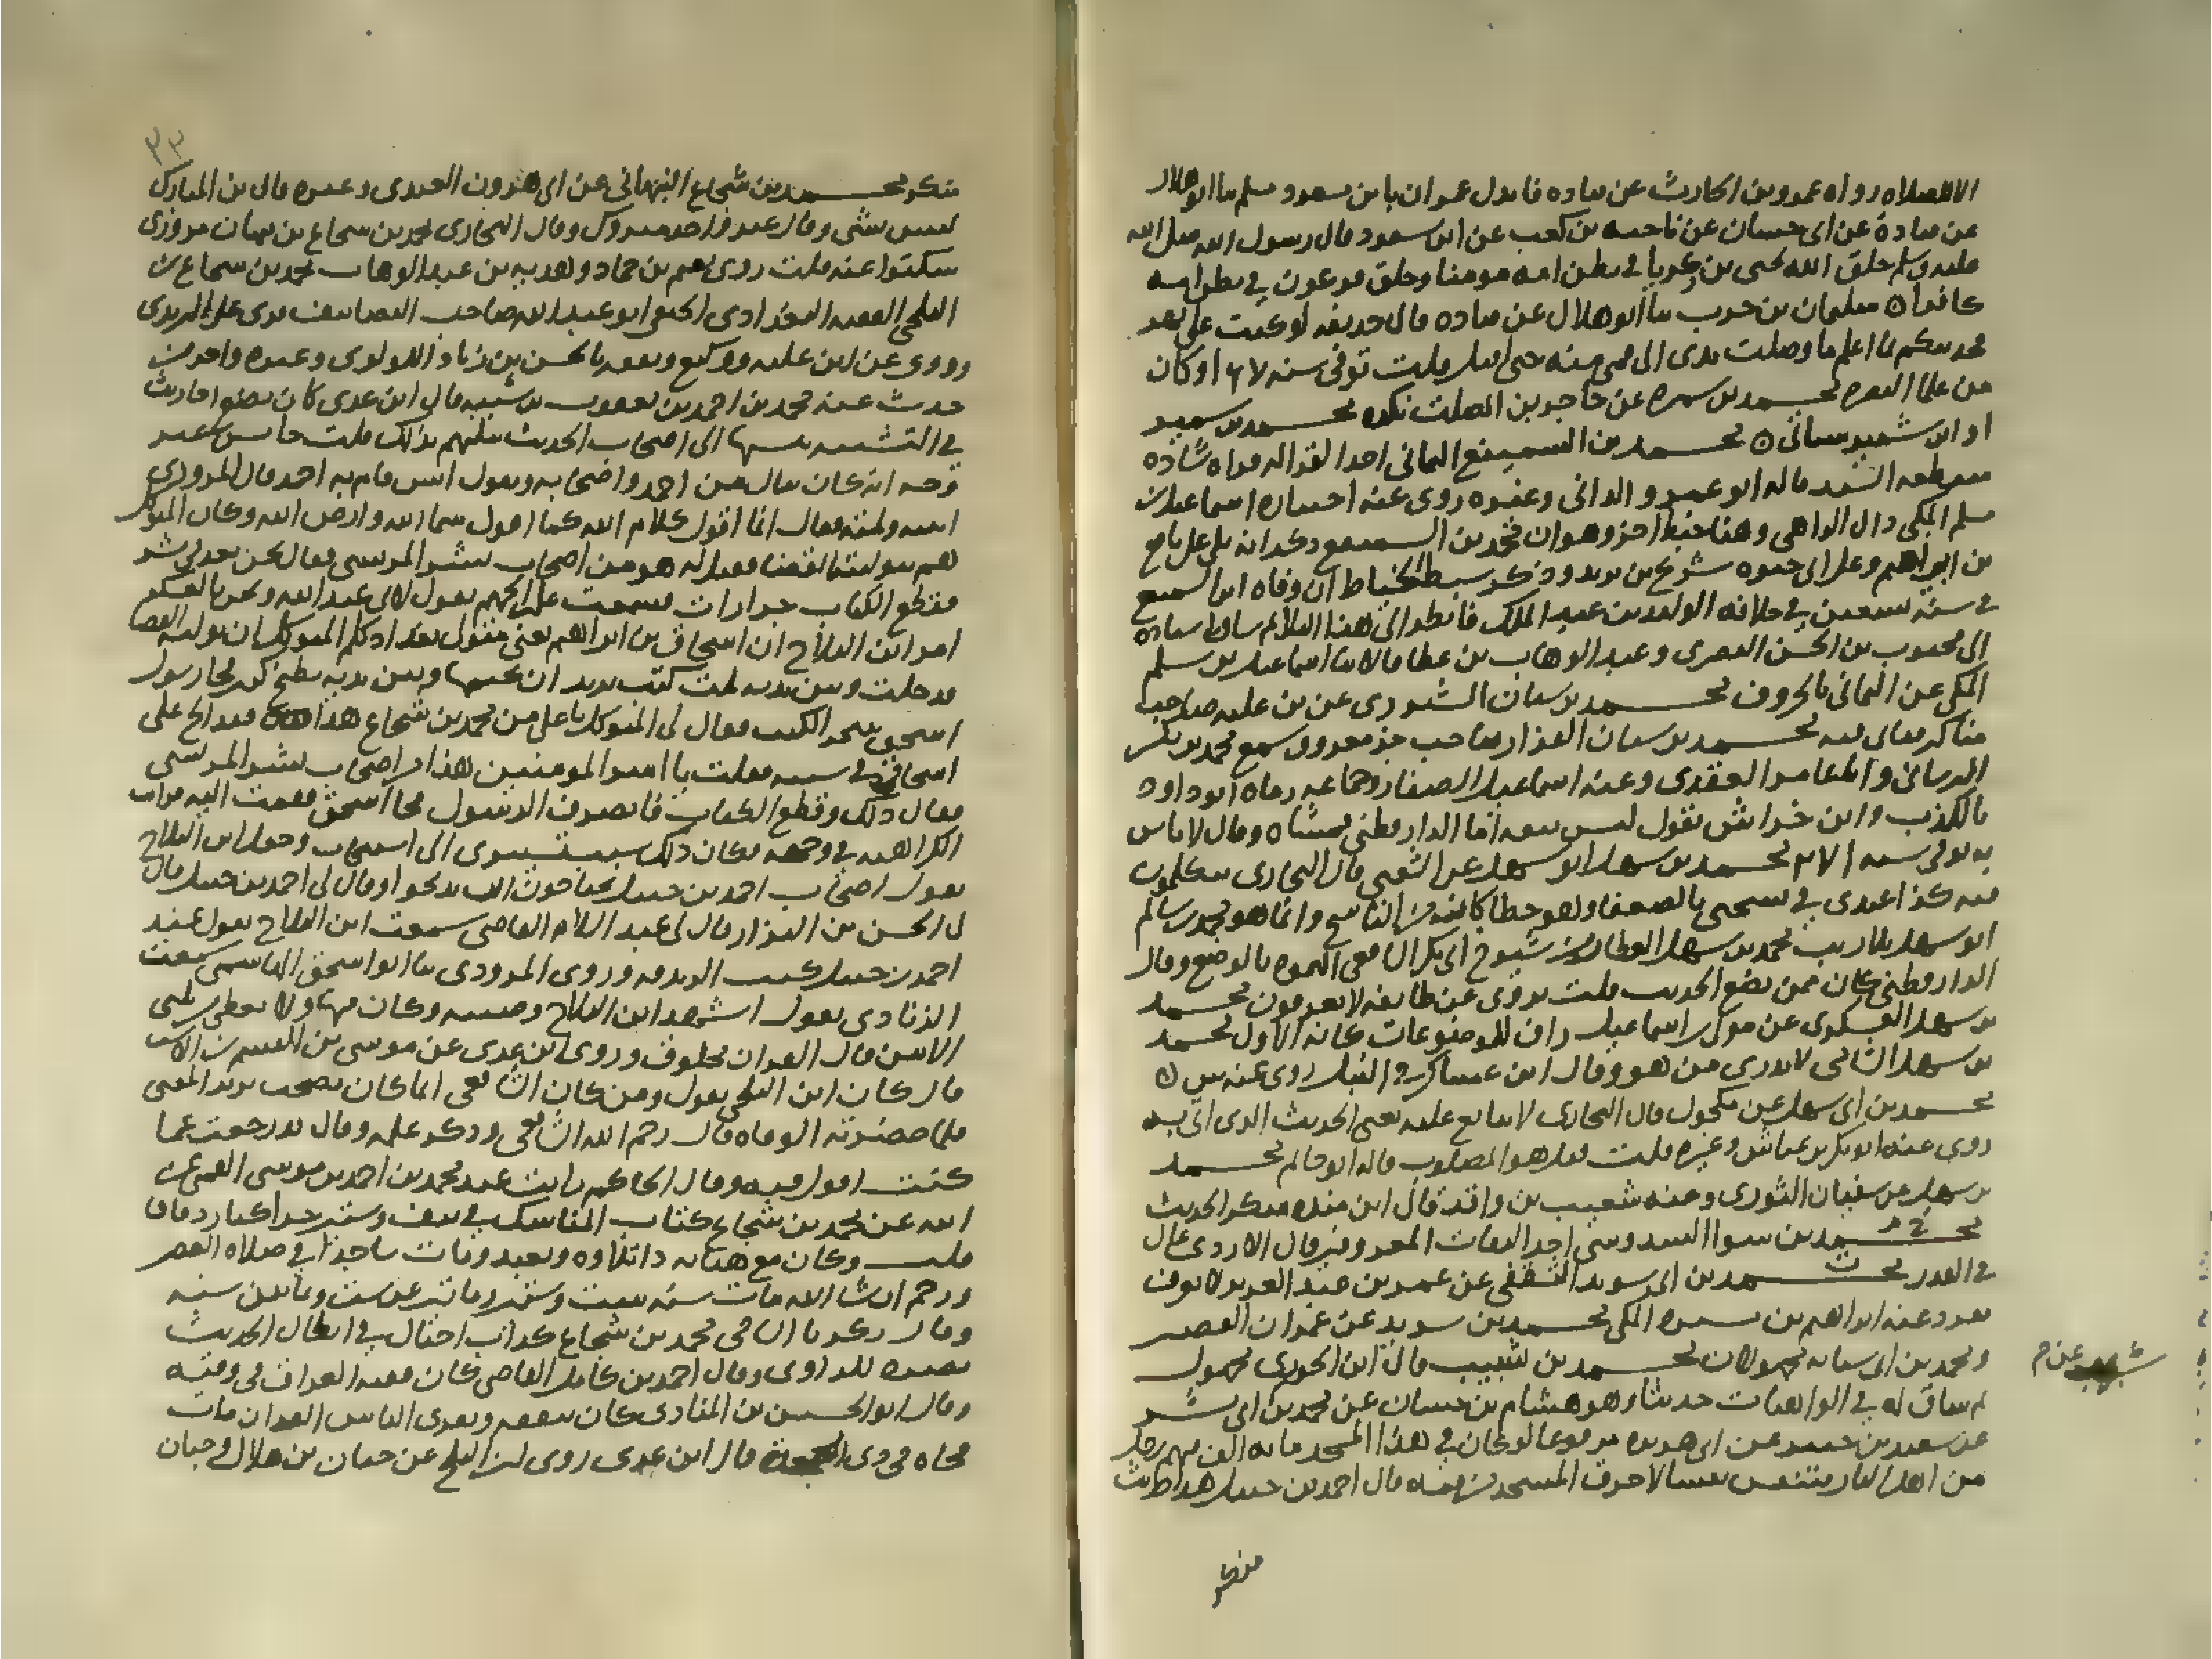 الا لصلاه رواه عمرو بن الحارث عن قتاده فابدل عمران بابن مسعود مسلم ثنا ابو هلال
عن قتادة عن ابي حسان عن ناجيه بن كعب عن ابن مسعود قال رسول الله صلى الله
عليه وسلم خلق الله يحيى بن زكريا في بطن امه مومنا وخلق فرعون في بطن امه
كافرا ه سليمان بن حرب ثنا ابو هلال عن قتاده قال حذيفه لو كنت على نهر
فحدثتكم ما اعلم ما وصلت يدي الى فمي منه حتى اقتل قلت توفى سنه ١٦٧ وكان
من علما البصره محمد بن سمره عن حاجر بن الصلت نكره محمد بن سميد
او ابن شميد سياتي ه محمد بن السميفع اليماني احد القرا له قراه شاذه
منقطعه السند قاله ابو عمرو الداني وغيره روى عنه اختياره اسماعيل بن
مسلم المكي ذاك الواهي وهنا خبط اخر وهو ان محمد بن السميفع ذكر انه تلى على نافع
بن ابراهيم وعلى ابي حيوه شريح بن يزيد وذكر سبط الخياط ان وفاه ابن السميفع
في سنة تسعين في خلافه الوليد بن عبد الملك فانظر الى هذا البلا ثم ساق اسناده
الى محبوب بن الحسن البصري وعبد الوهاب بن عطا قالا ثنا اسماعيل بن مسلم
المكي عن اليماني بالحروف محمد بن سنان الشيزري عن بن عليه صاحب
مناكير يتانى فيه محمد بن سنان القزاز صاحب جز معروف سمع محمد بن بكر
البرساني وابا عامر العقدي وعنه اسماعيل الصفار وجماعه رماه ابو داود
بالكذب وابن خراش يقول ليس بثقه اما الدارقطني فمشاه وقال لا باس
به توفي سنه ٢٧١ محمد بن سهل ابو سهل عن الشعبي قال البخاري يتكلمون
فيه كذا عندي في نسختي بالضعفا وهو خطا كانه من الناسخ وانما هو محمد بن سالم
ابو سهل بلا ريب محمد بن سهل العطار من شيوخ ابي بكر الشافعي اتهموه بالوضع وقال
الدارقطني كان ممن يضع الحديث قلت يروي عن طايفه لا يعرفون محمد
بن سهل العسكري عن مومل بن اسماعيل راو للموضوعات كانه الاول محمد
بن سهل الشامي لا يدرى من هو وقال ابن عساكر في النبل روى عنه س ه
محمد بن ابي سهل عن مكحول قال البخاري لا يتابع عليه يعني الحديث الذي اتى به
روى عنه ابو بكر بن عياش وغيره قلت قيل هو المصلوب قاله ابو حاتم محمد
بن سهل عن سفيان الثوري وعنه شعيب بن واقد قال ابن منده منكر الحديث
خ م
محمد بن سوا السدوسي احد الثقات المعروفين قال الازدي غال
في القدر محمد بن ابي سويد الثقفي عن عمر بن عبد العزيز لا يعرف
تفرد عنه ابراهيم بن ميسره المكي محمد بن سويد عن عمران القصير
ومحمد بن ابي سيابه مجهولان محمد بن شبيب قال ابن الجوزي مجهول
ثم ساق له في الواهيات حديثا وهو هشام بن حسان عن محمد بن ابي شبيب
عن سعيد بن جبير عن ابي هريره مرفوعا لو كان في هذا المسجد مايه الف فيهم رجل
من اهل النار يتنفس نفسا لاحرق المسجد ومن فيه قال احمد بن حنبل هذا حديث
منكر
٣٣
منكر محمد بن شجاع النبهاني عن ابي هرون العبدي وغيره قال بن المبارك
ليس بشي وقال غير واحد متروك وقال البخاري محمد بن شجاع بن نبهان مروزي
سكتوا عنه قلت روى نعيم بن حماد وهديه بن عبد الوهاب محمد بن شجاع بن
الثلجي الفقيه البغدادي الحنفي ابو عبد الله صاحب التصانيف قرى على اليزيدي
وروى عن ابن عليه ووكيع وتفقه بالحسن بن زياد اللولوي وغيره واخر من
حدث عنه محمد بن احمد بن يعقوب بن شيبه قال ابن عدي كان يضع احاديث
في التشبيه ينسبها الى اصحاب الحديث يثلبهم بذلك قلت
انه كان ينال من احمد واصحابه ويقول ايش قام به احمد قال المروذي
اتيته ولمته فقال انما اقول كلام الله كما اقول سما الله وارض الله وكان المتوكل
هم بتوليته القضا فقيل له هو من اصحاب بشر المريسي فقال نحن بعد في بشر
فقطع الكتاب جزازات سمعت علي بن الجهم يقول لابي عبد الله ونحن بالعسكر
امر ابن الثلاج ان اسحاق بن ابراهيم يعني متولي بغداد كلم المتوكل ان يوليه القضا
فدخلت وبين يديه كتب يريد ان يختمها وبين يديه بطيخ كثير فجا رسول
اسحق ينجز الكتب فقال لي المتوكل يا علي من محمد بن شجاع هذا فقد الح علي
اسحاق في سببه فقلت يا امير المومنين هذا من اصحاب بشر المريسي
فقال ذلك وقطع الكتاب فانصرف الرسول فجا اسحق فقمت اليه فرايت
الكراهيه في وجهه فكان ذلك سبب تسييري الى اسبيجاب وجعل ابن الثلاج
يقول اصحاب احمد بن حنبل يحتاجون ان يذبحوا وقال لي احمد بن حنبل قال
لي الحسن بن البزار قال لي عبد السلام القاضي سمعت ابن الثلاج يقول عند
احمد بن حنبل كتب الزندقه وروى المروذي ثنا ابو اسحق الهاشمي سمعت
الزيادي يقول اشهدنا ابن الثلاج وصيته وكان فيها ولا يعطى من ثلثي
الا من قال القران مخلوق وروى بن عدي عن موسى بن القسم بن الاشيب
قال كان ابن الثلجي يقول ومن كان الشافعي انما كان يصحب بربر المغني
فلما حضرته الوفاه قال رحم الله الشافعي وذكر علمه وقال قد رجعت عما
كنت اقول فيه وقال الحاكم رايت عند محمد بن احمد بن موسى القمي عن
ابيه عن محمد بن شجاع كتاب المناسك في نيف وستين جزا كبار دقاق
قلت وكان مع هناته ذا تلاوه وتعبد ومات ساجدا في صلاه العصر
ورحم ان شا الله مات سنه ست وستين ومايتين عن ست وثمانين سنه
وقال زكريا الساجي محمد بن شجاع كذاب احتال في ابطال الحديث
نصره للراوي وقال احمد بن كامل القاضي كان فقيه العراق في وقته
وقال ابو الحسين بن المنادي كان يتفقه ويقري الناس القران مات
فجاه في ذي الحجة قال ابن عدي روى ابن الثلجي عن حبان بن هلال وحبان